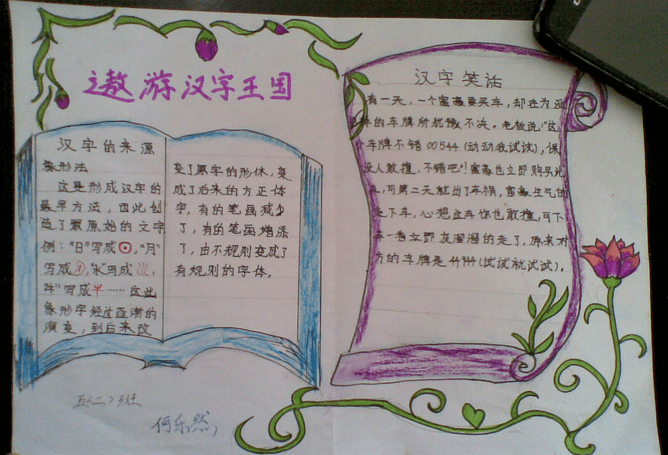 遨游汉字王国
汉字的来源
象形法
这是形成汉字的
最早方法，因此创
造了最原始的文字
例："日"写成⊙，"月"
写成
写成
写成……这些
象形字经过逐渐的
演变，到后来改
变了原字的形体，变
成了后来的方正体
字，有的笔画减少
了，有的笔画增添
了，由不规则变成了
有规则的字体。
汉字笑话
有一天，一个富豪要买车，却在为
车的车牌所犹豫不决。老板说："这
车牌不错00544(动动我试试)，保
没人敢撞，不错吧！富豪也立即购买此
，可第二天就出了车祸，富豪生气
走下车，心想这车你也敢撞，可下
一看立即灰溜溜的走了，原来对
方的车牌是44944(试试就试试)。
五〈二〉班
何乐然